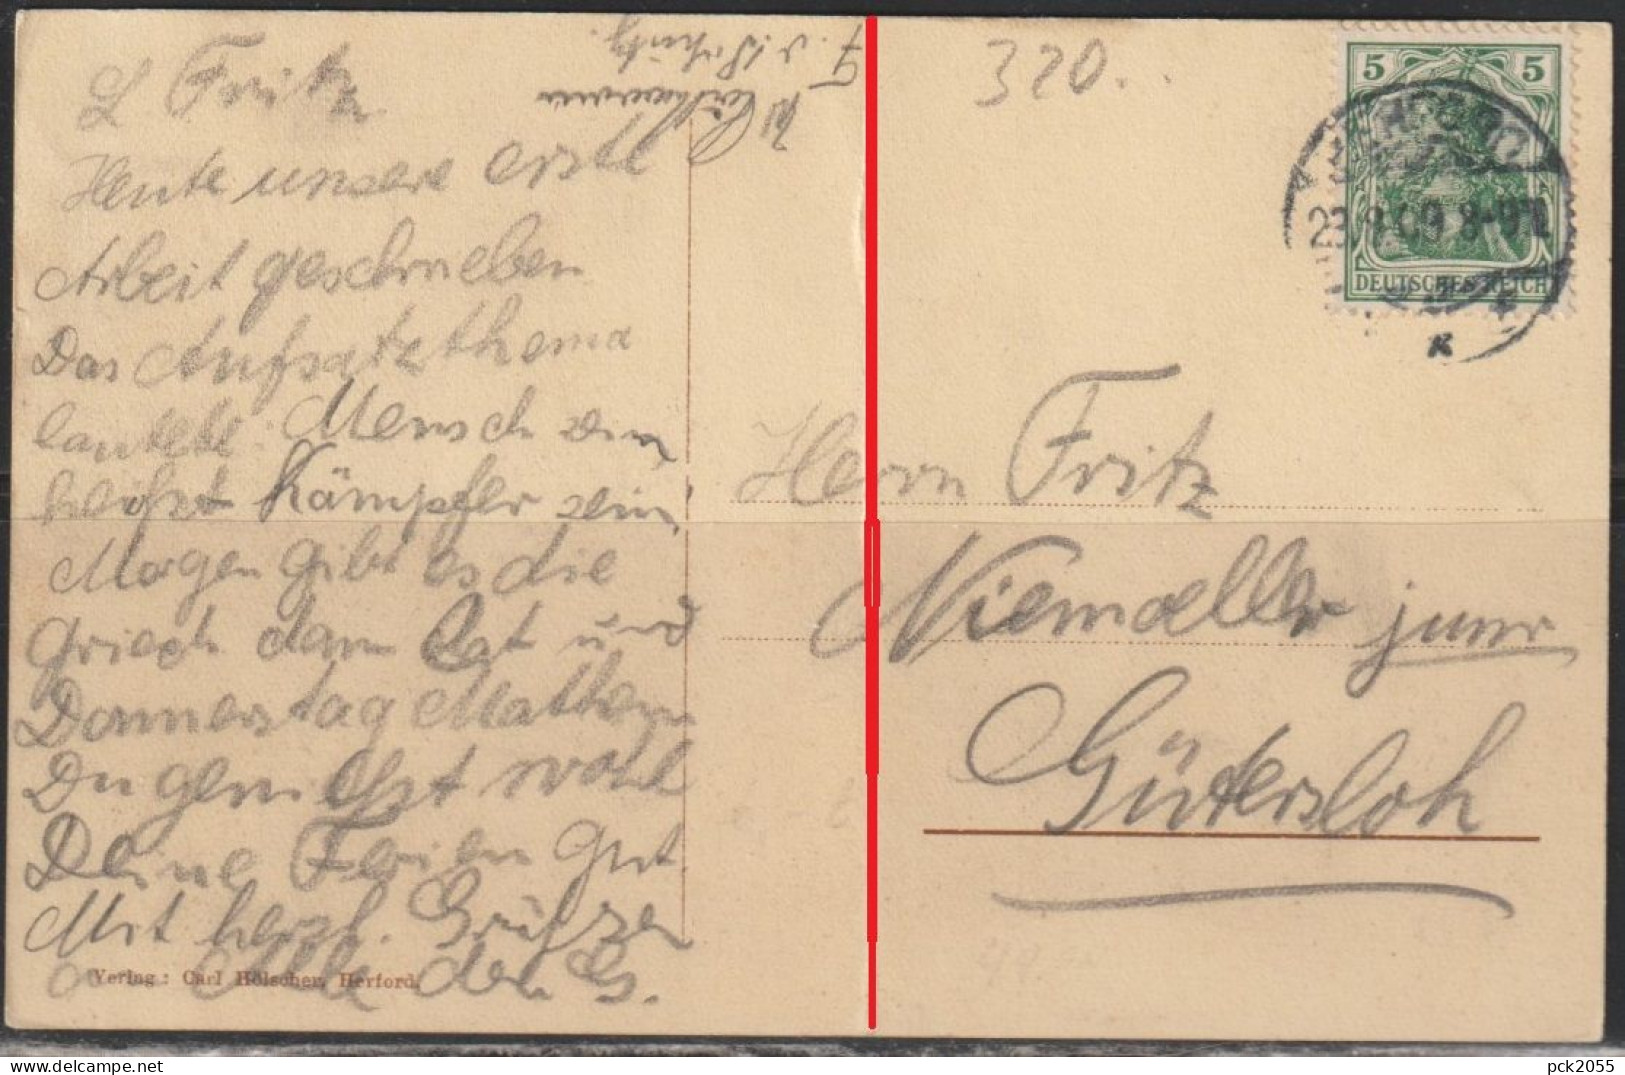 L Fritz
Heute unsere erste
Arbeit geschrieben
Das Aufsatzthema
lautete: Mensch sein,
heißst Kämpfer sein,
Morgen gibt es die
griech dann Lat und
Donnerstag Mathem
Du geniesst wohl
Deine Ferien gut
Mit herzl. Grüßsen
Verlag: Carl Hölscher, Herford.
320..
5 5
DEUTSCHES REICH
23. 09 8-9
Herrn Fritz
Niemoeller junr
Gütersloh
delcampe.net
pck2055